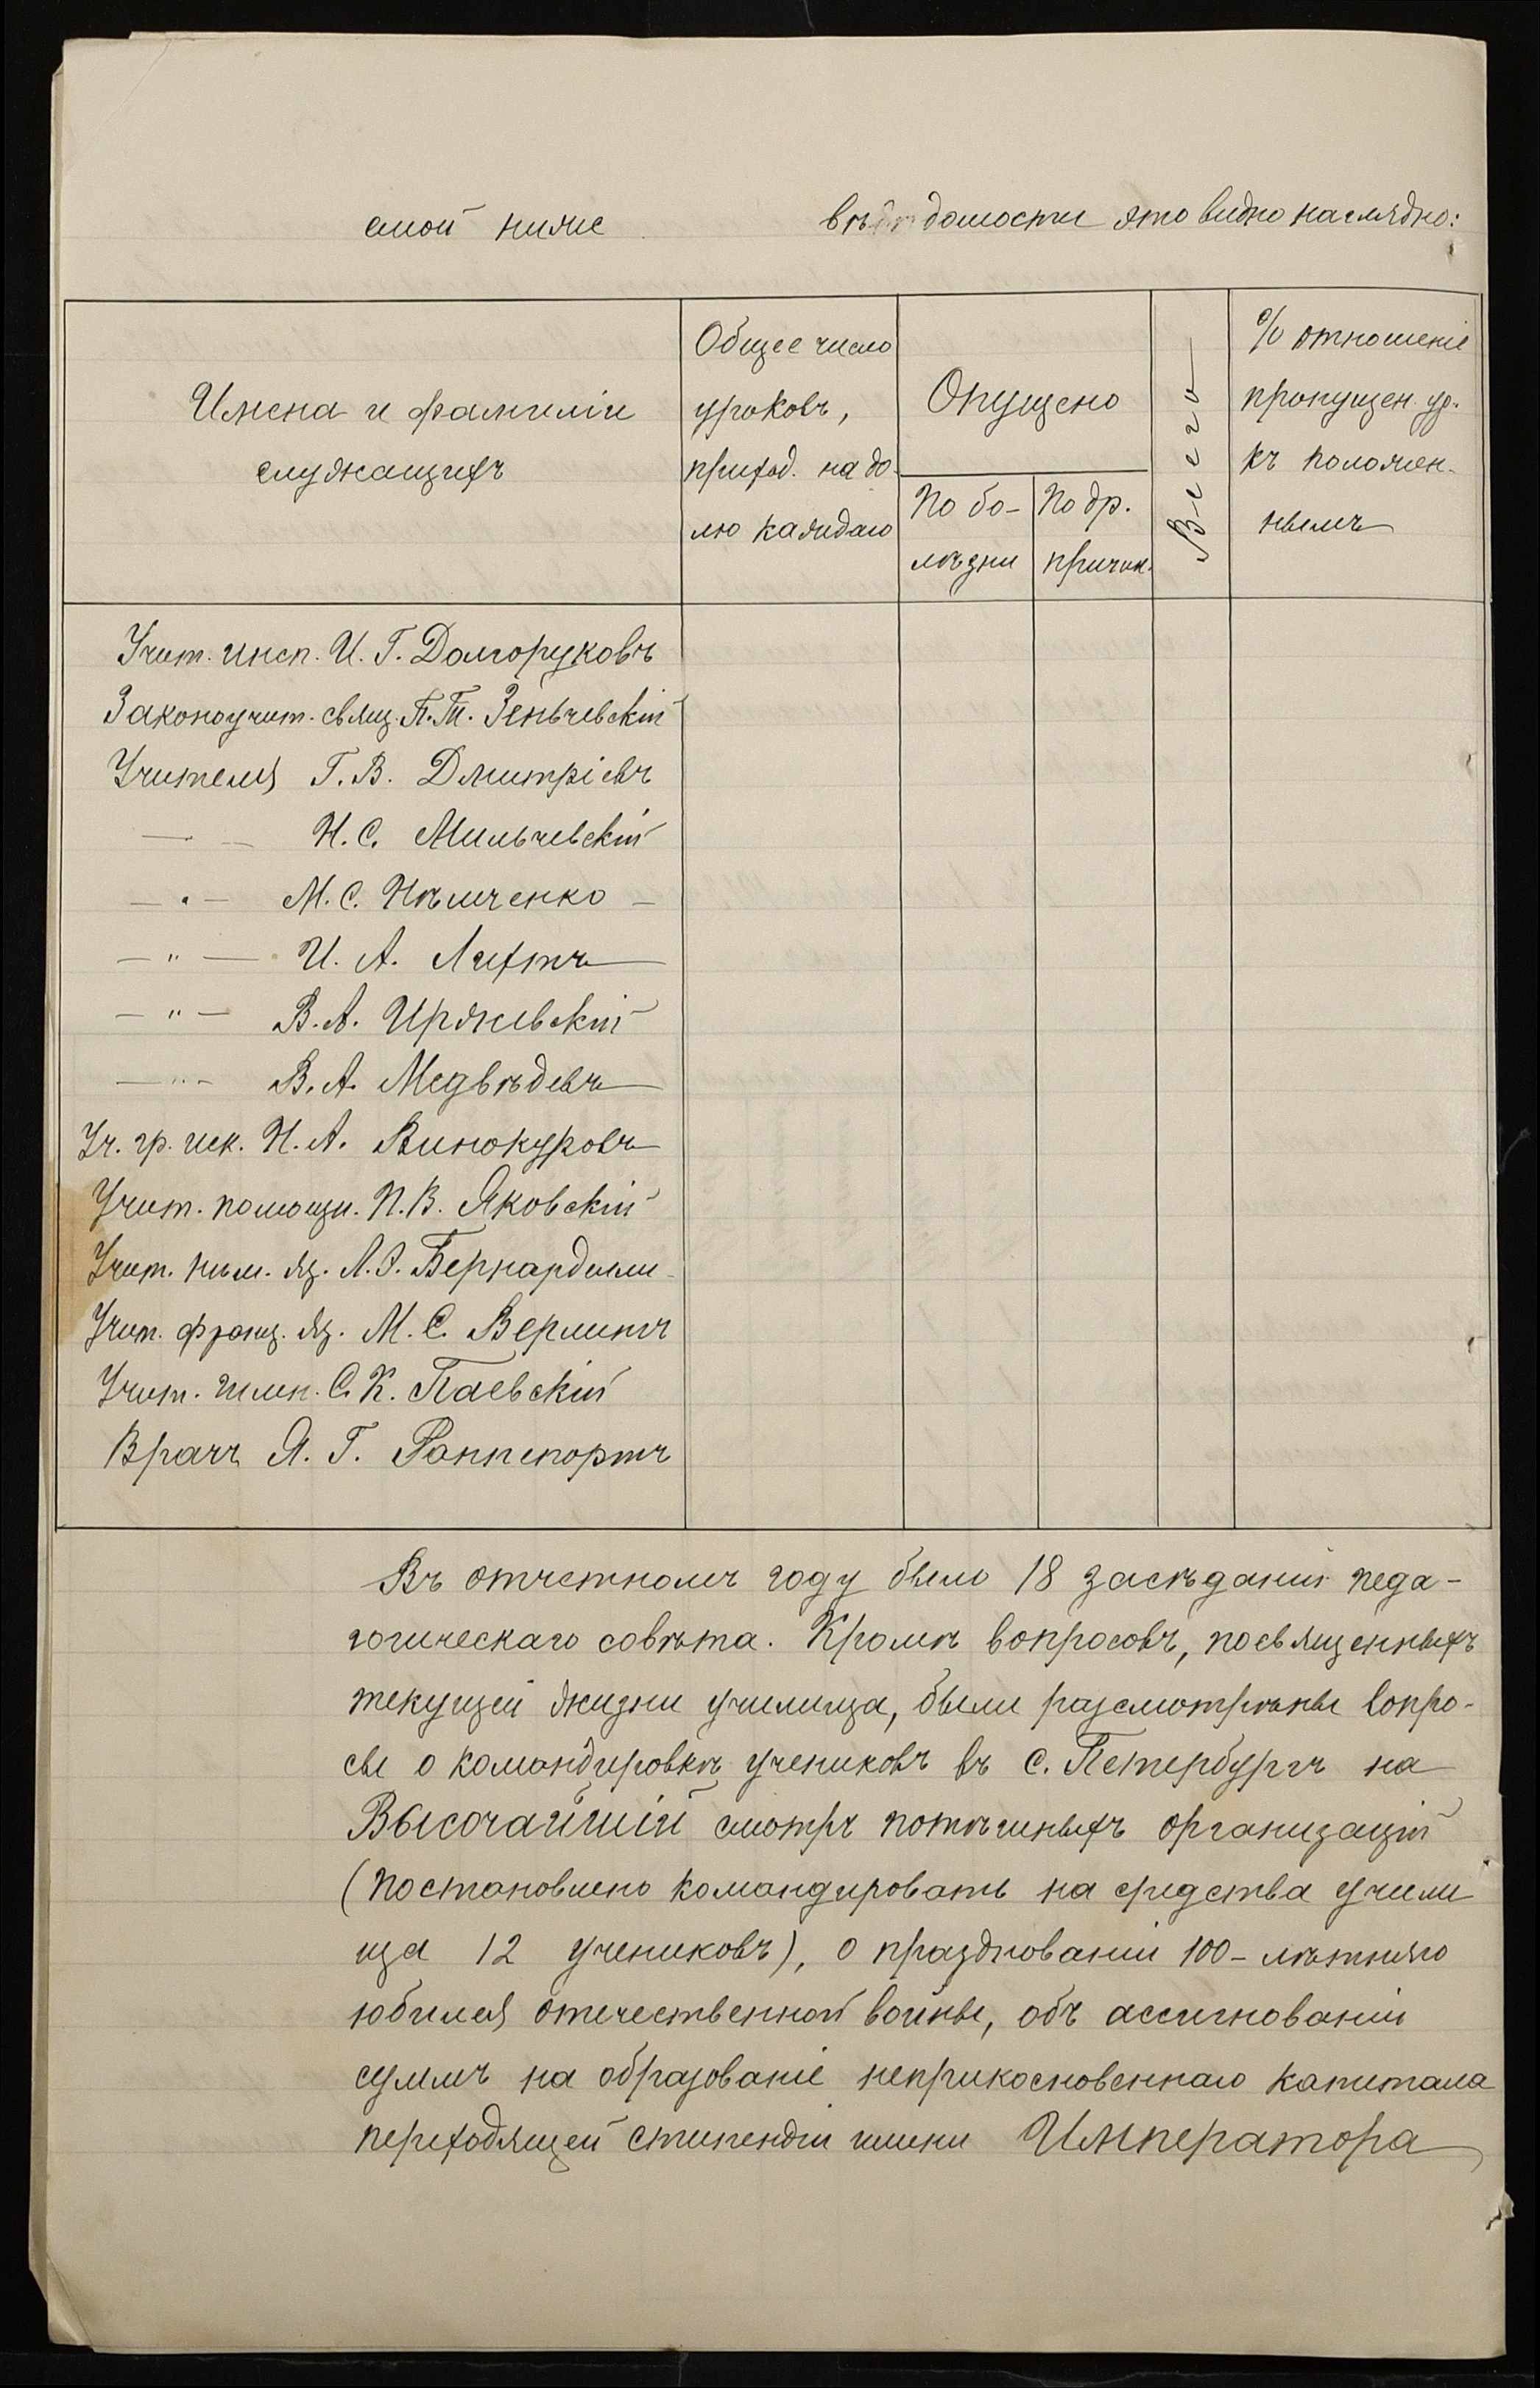 смой ниже вѣдомости это видно наглядно:
Имена и фамиліи
служащихъ
Общее число
уроковъ,
приход. на до-
лю каждаго
Опущено
По бо-
лѣзни
По др.
причин.
Всего
% отношеніе
пропущен. ур.
къ положен-
нымъ
Учит. инсп. И. Г. Долгоруковъ
Законоучит. свящ. П. Т. Зеньчевскій
Учителя Г. В. Дмитріевъ
— — Н. С. Мильчевскій
— " — М. С. Нѣмченко —
— " — И. А. Лихтъ
— " — В. А. Иржевскій
— " — В. А. Медвѣдевъ
Уч. гр. иск. Н. А. Винокуровъ
Учит. помощн. П. В. Яковскій
Учит. нѣм. яз. Л. Э. Бернардели
Учит. франц. яз. М. С. Верлинъ
Учит. гимн. С. К. Паевскій
Врачъ Я. Г. Раппепортъ
Въ отчетномъ году было 18 засѣданій педа-
гогическаго совѣта. Кромѣ вопросовъ, посвященныхъ
текущей жизни училища, были разсмотрѣны вопро-
сы о командировкѣ учениковъ въ С. Петербургъ на
Высочайшій смотръ потѣшныхъ организацій
(постановлено командировать на средства учили
ща 12 учениковъ), о празднованіи 100-лѣтняго
юбилея отечественной войны, объ ассигнованіи
суммъ на образованіе неприкосновеннаго капитала
переходящей стипендіи имени Императора